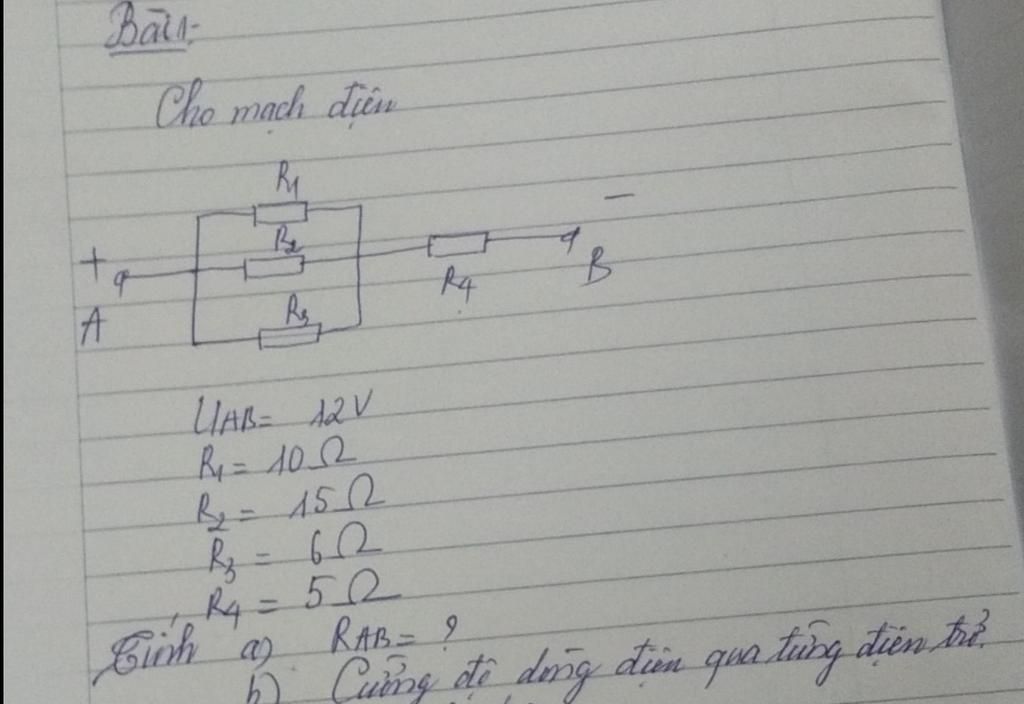 Bài 1:
Cho mạch điện
R1
R2
R3
R4
+
A
−
B
UAB = 12V
R1 = 10 Ω
R2 = 15 Ω
R3 = 6 Ω
R4 = 5 Ω
Tính a) RAB = ?
b) Cường độ dòng điện qua từng điện trở.